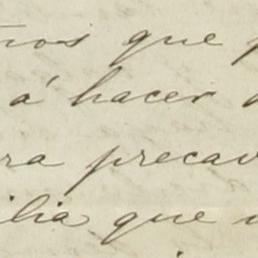 que
á hacer
ra precav
ilia que